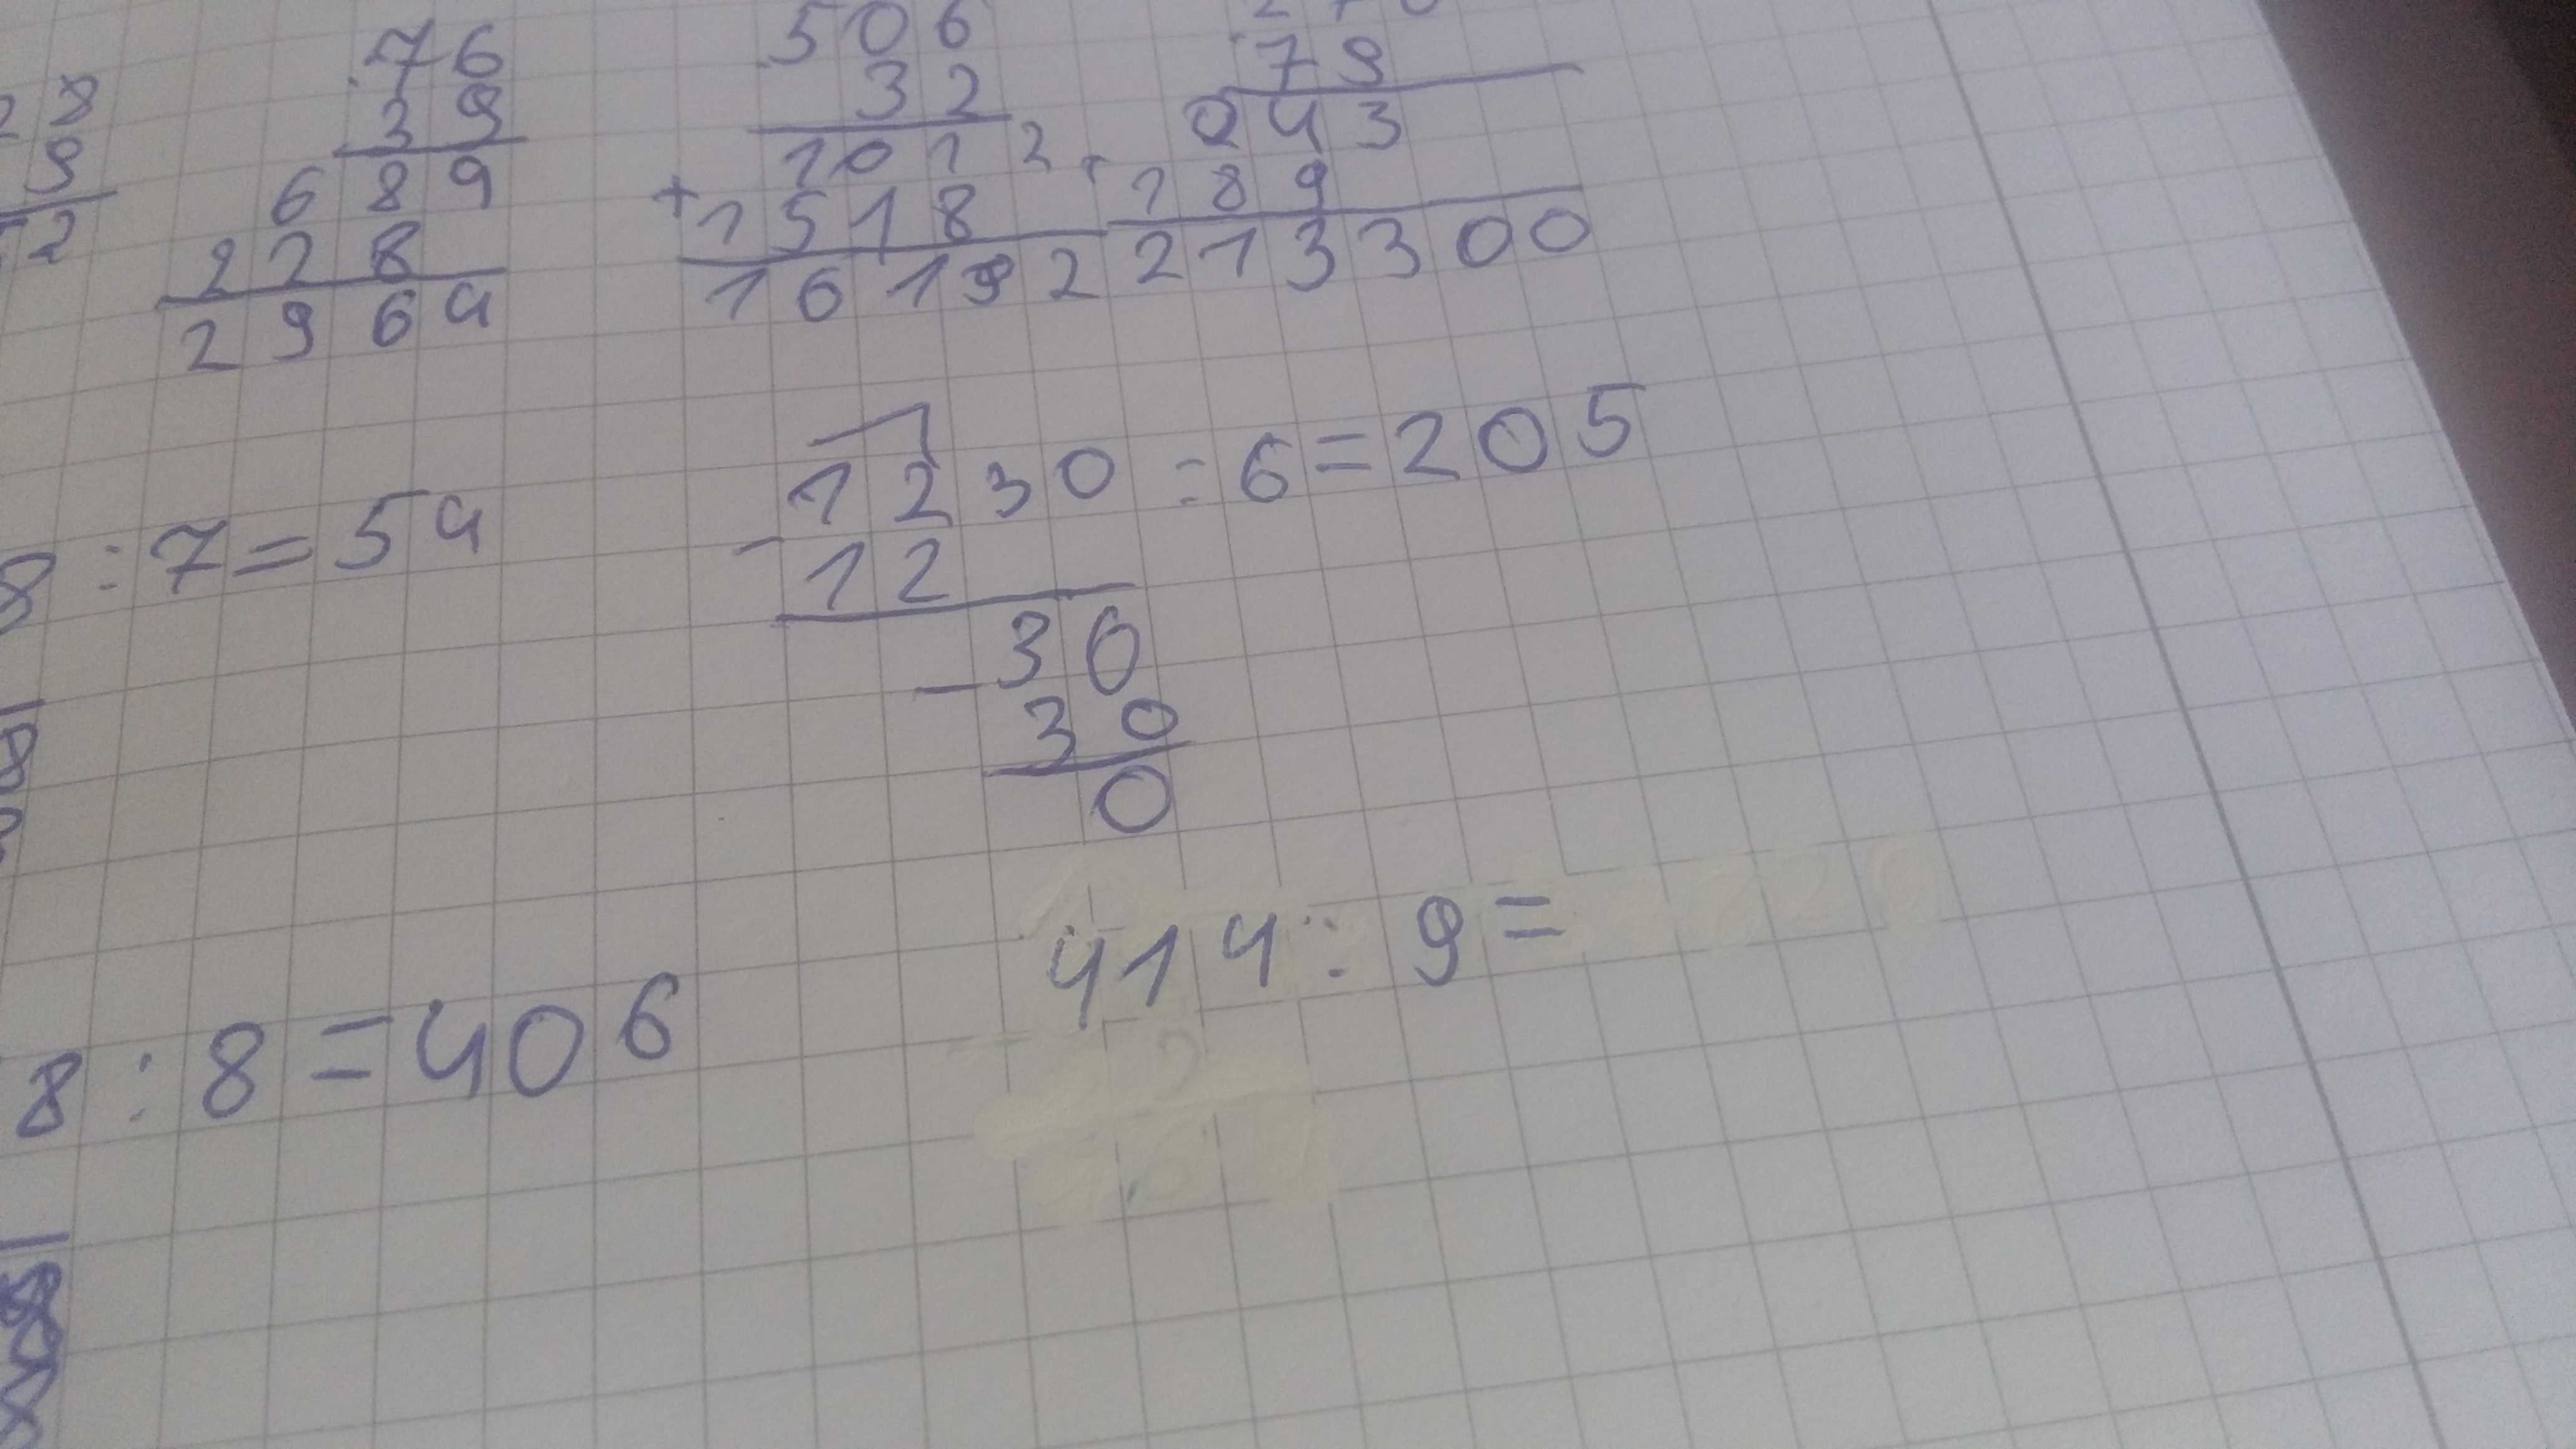 76 506
28 39 32 79
9 689 1012 + 243
2 228 + 1518 189
2964 16192 213300
1230 : 6 = 205
8 : 7 = 54
- 12
- 30
30
0
414 : 9 =
8 : 8 = 406